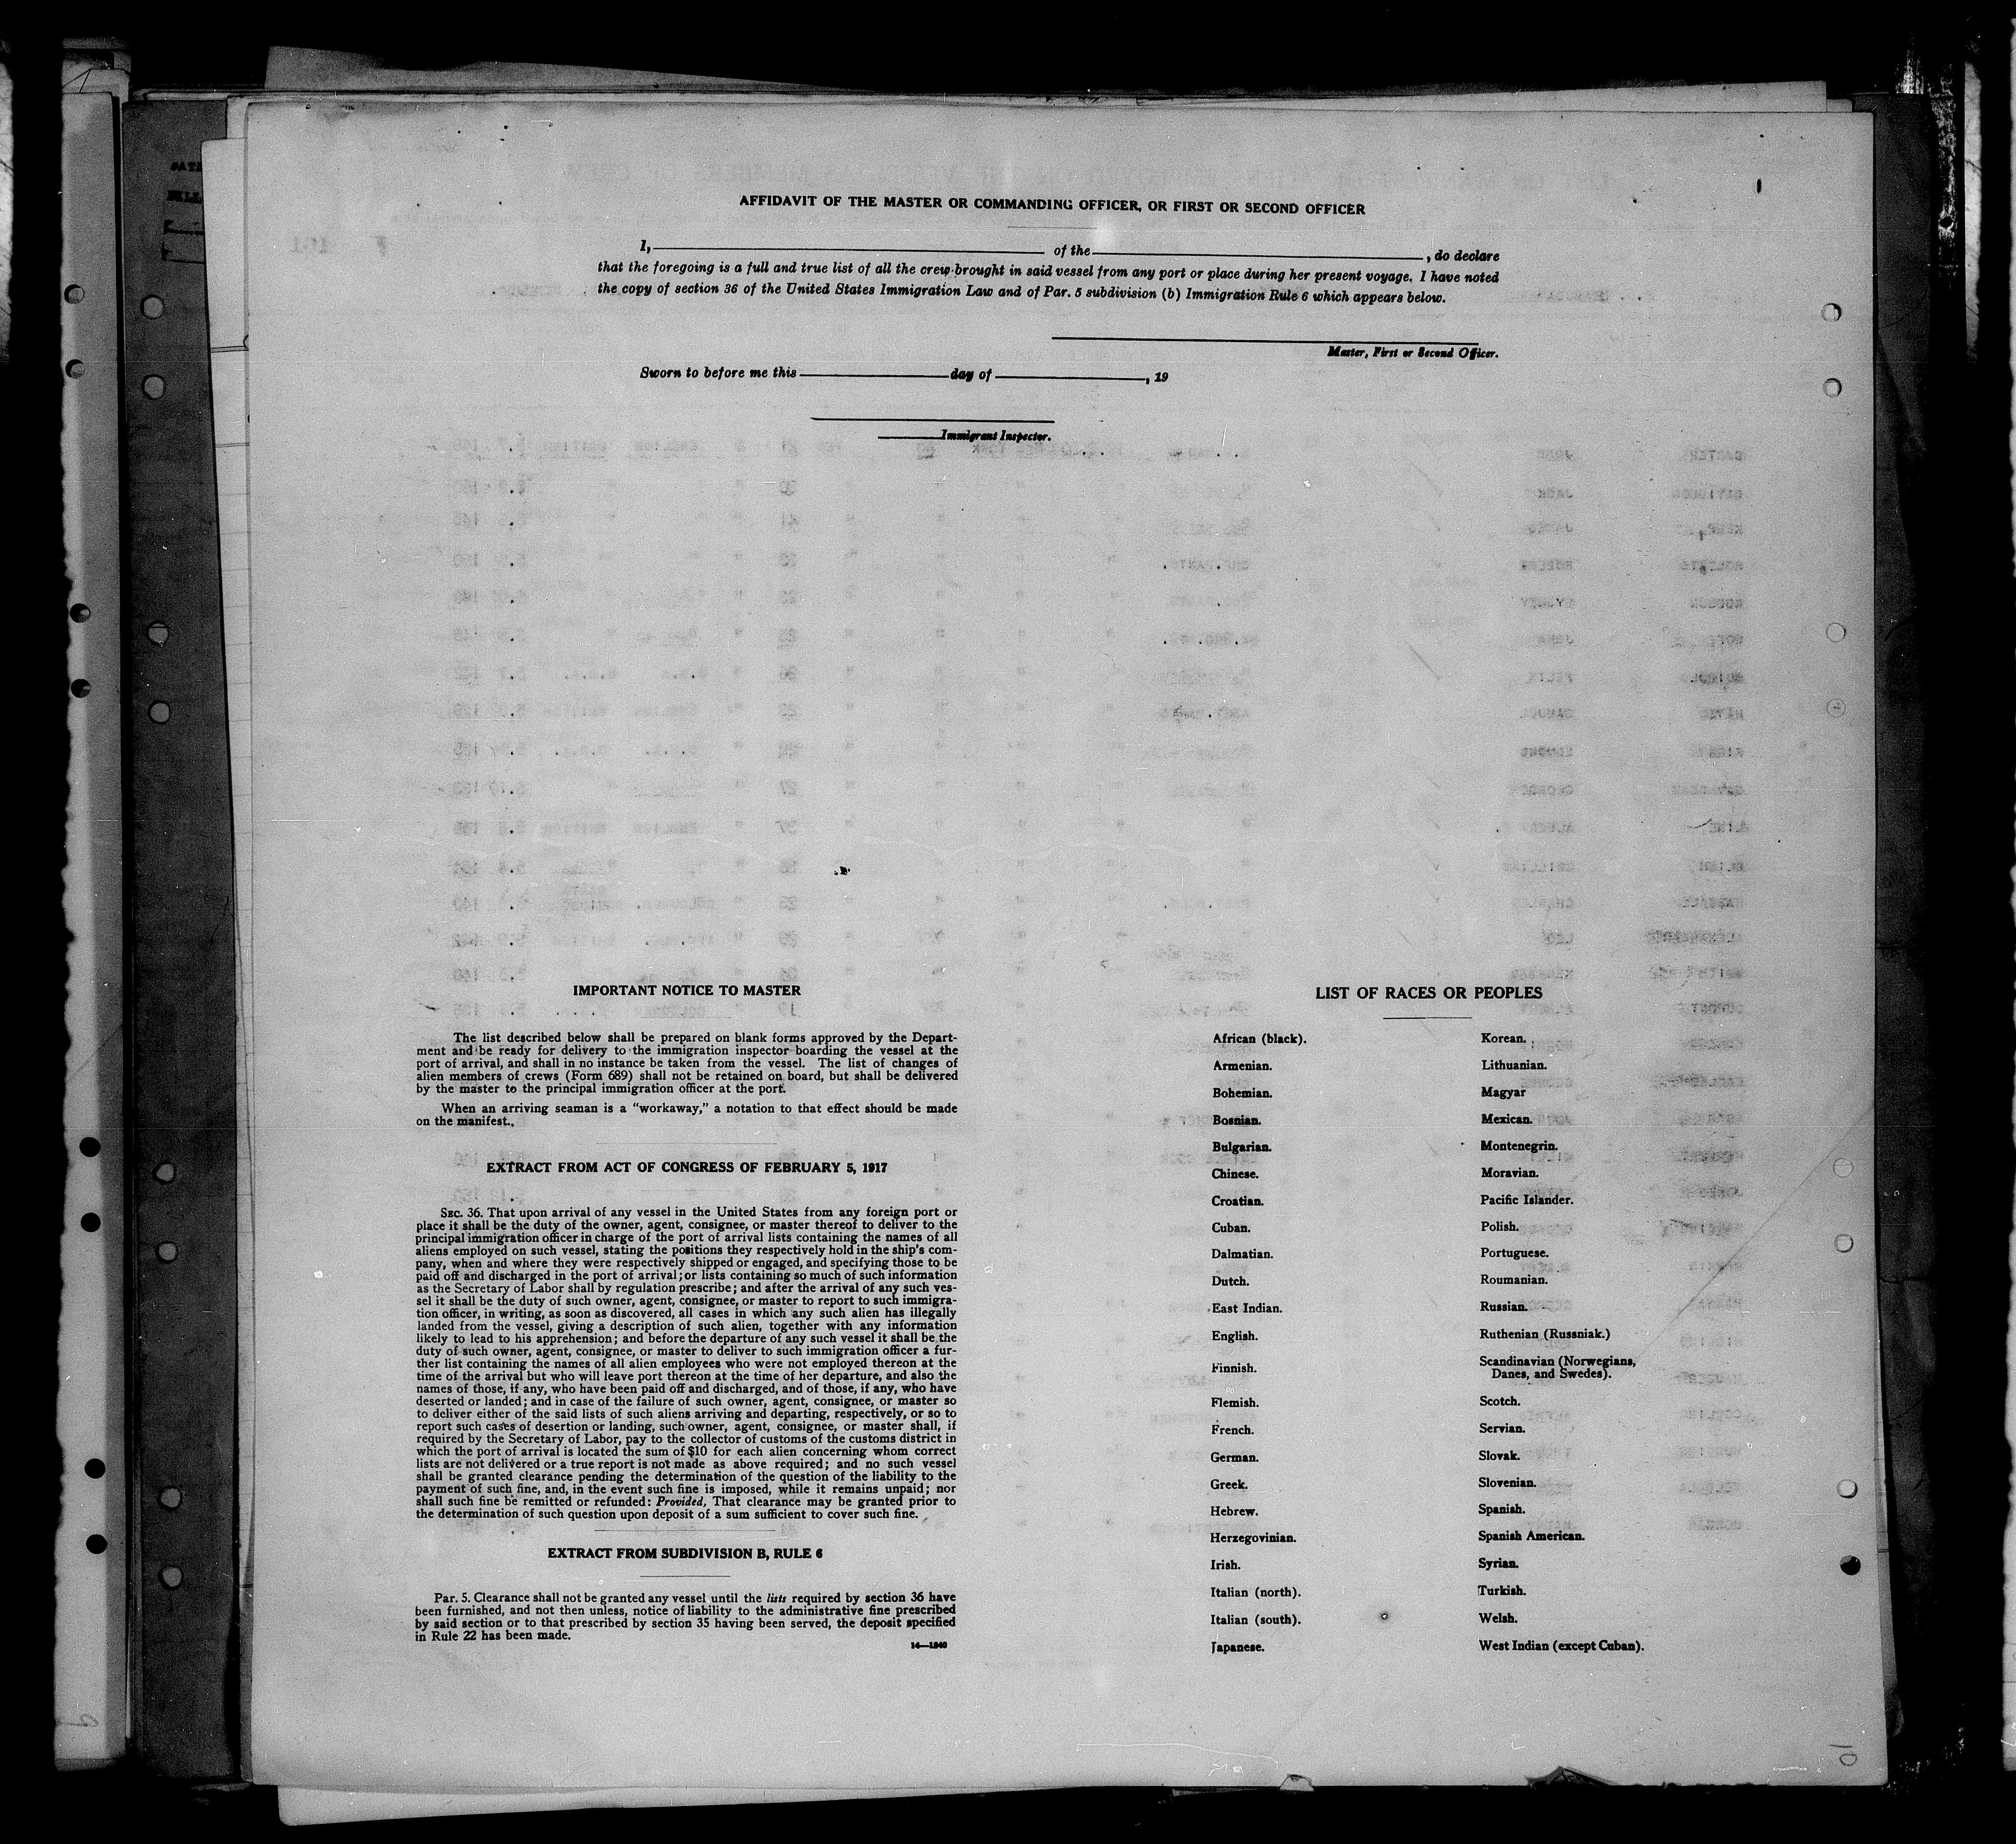 AFFIDAVIT OF THE MASTER OR COMMANDING OFFICER, OR FIRST OR SECOND OFFICER
I, of the , do declare
that the foregoing is a full and true list of all the crew brought in said vessel from any port or place during her present voyage. I have noted
the copy of section 36 of the United States Immigration Law and of Par. 5 subdivision (b) Immigration Rule 6 which appears below.
Master, First or Second Officer.
Sworn to before me this day of , 19
Immigrant Inspector.
IMPORTANT NOTICE TO MASTER
The list described below shall be prepared on blank forms approved by the Depart-
ment and be ready for delivery to the immigration inspector boarding the vessel at the
port of arrival, and shall in no instance be taken from the vessel. The list of changes of
alien members of crews (Form 689) shall not be retained on board, but shall be delivered
by the master to the principal immigration officer at the port.
When an arriving seaman is a "workaway," a notation to that effect should be made
on the manifest.
EXTRACT FROM ACT OF CONGRESS OF FEBRUARY 5, 1917
SEC. 36. That upon arrival of any vessel in the United States from any foreign port or
place it shall be the duty of the owner, agent, consignee, or master thereof to deliver to the
principal immigration officer in charge of the port of arrival lists containing the names of all
aliens employed on such vessel, stating the positions they respectively hold in the ship's com-
pany, when and where they were respectively shipped or engaged, and specifying those to be
paid off and discharged in the port of arrival; or lists containing so much of such information
as the Secretary of Labor shall by regulation prescribe; and after the arrival of any such ves-
sel it shall be the duty of such owner, agent, consignee, or master to report to such immigra-
tion officer, in writing, as soon as discovered, all cases in which any such alien has illegally
landed from the vessel, giving a description of such alien, together with any information
likely to lead to his apprehension; and before the departure of any such vessel it shall be the
duty of such owner, agent, consignee, or master to deliver to such immigration officer a fur-
ther list containing the names of all alien employees who were not employed thereon at the
time of the arrival but who will leave port thereon at the time of her departure, and also the
names of those, if any, who have been paid off and discharged, and of those, if any, who have
deserted or landed; and in case of the failure of such owner, agent, consignee, or master so
to deliver either of the said lists of such aliens arriving and departing, respectively, or so to
report such cases of desertion or landing, such owner, agent, consignee, or master shall, if
required by the Secretary of Labor, pay to the collector of customs of the customs district in
which the port of arrival is located the sum of $10 for each alien concerning whom correct
lists are not delivered or a true report is not made as above required; and no such vessel
shall be granted clearance pending the determination of the question of the liability to the
payment of such fine, and, in the event such fine is imposed, while it remains unpaid; nor
shall such fine be remitted or refunded: Provided, That clearance may be granted prior to
the determination of such question upon deposit of a sum sufficient to cover such fine.
EXTRACT FROM SUBDIVISION B, RULE 6
Par. 5. Clearance shall not be granted any vessel until the lists required by section 36 have
been furnished, and not then unless, notice of liability to the administrative fine prescribed
by said section or to that prescribed by section 35 having been served, the deposit specified
in Rule 22 has been made.
14—1240
LIST OF RACES OR PEOPLES
African (black).
Armenian.
Bohemian.
Bosnian.
Bulgarian.
Chinese.
Croatian.
Cuban.
Dalmatian.
Dutch.
East Indian.
English.
Finnish.
Flemish.
French.
German.
Greek.
Hebrew.
Herzegovinian.
Irish.
Italian (north).
Italian (south).
Japanese.
Korean.
Lithuanian.
Magyar
Mexican.
Montenegrin.
Moravian.
Pacific Islander.
Polish.
Portuguese.
Roumanian.
Russian.
Ruthenian (Russniak.)
Scandinavian (Norwegians,
Danes, and Swedes).
Scotch.
Servian.
Slovak.
Slovenian.
Spanish.
Spanish American.
Syrian.
Turkish.
Welsh.
West Indian (except Cuban).
10